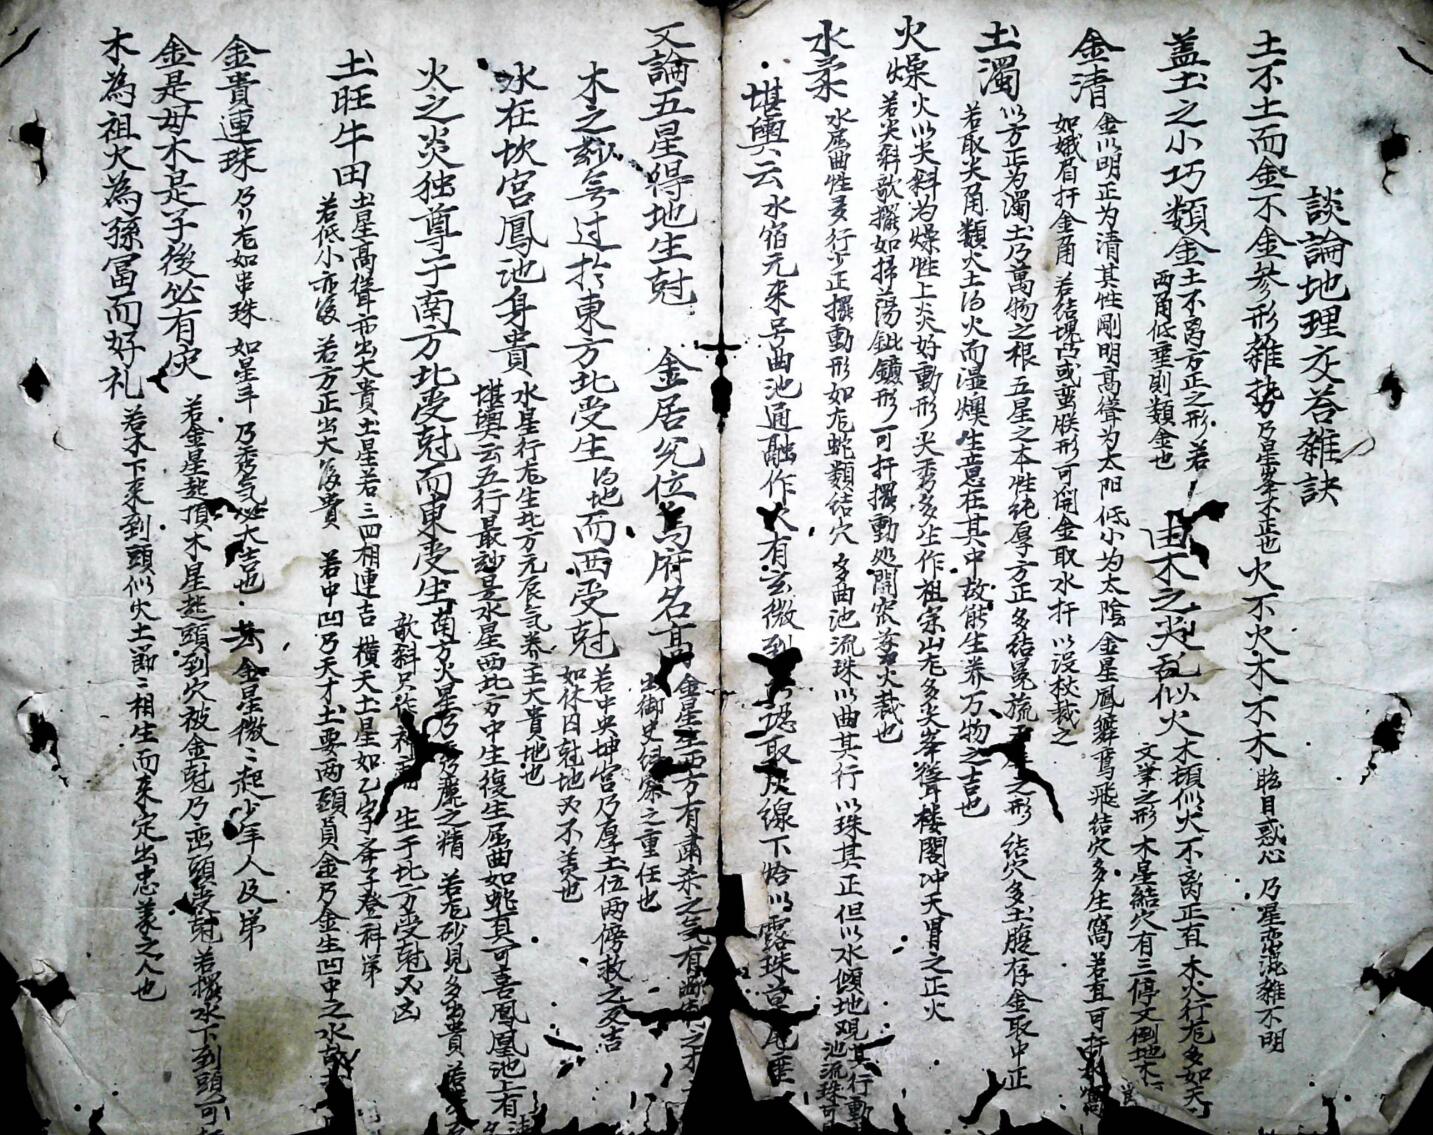 談論地理交答雜訣
土不土而金不金參形雜势乃星峯不正也火不火木不木眩目惑心乃星恋混雜不明
盖土之小巧類金土不离方正之形若两角低垂則類金也由木之尖乱似火木頃似火不离正直木火行尨多如天
文筆之形木星結穴有三停文倒地木
金清金以明正为清其性剛明高聳为太阳低小为太陰金星鳳舞鸾飛結穴多生窩若直可扦
如娥眉扦金角若結塊凸或蛮朕形可開金取水扦以没校裁之
土濁以方正为濁土乃萬物之根五星之本性纯厚方正多結冕旒之形結穴多土腹存金取中正
若取尖角類火土得火而溫燠生意在其中故能生养万物之吉也
火燥火以尖斜为燥性上炎好動形尖秀多生作祖宗山尨多尖峯聳楼閣冲天胃之正火
若尖斜欹擺如掃蕩鈚鑣形可扦擺動処開窩火裁也
水柔水属曲性多行少正擺動形如尨蛇類結穴多曲池流珠以曲其行以珠其正但以水傾地观其行動
池流珠可
堪輿云水宿元来号曲池通融作穴有玄微到取灰線下恰以露珠草尾垂
又論五星得地生尅金居兊位為府名高金星生西方有肅杀之气有斷制之才
出御史之重任也
木之㚈兮过於東方北受生得地而西受尅若中央坤宫乃厚土位两傍救之反吉
如休囚尅地又不美也
水在坎宫鳳池身貴水星行尨生北方元辰气养主大貴地也
堪輿云五行最妙是水星西北方中生復生屈曲如蛇其可喜鳳凰池上有
火之炎独尊于南方北受尅而東受生南方火星乃秀麗之精若尨砂見多出貴
欹斜只作生于北方受尅又凶
土旺牛田土星高聳亦出大貴土星若三四相連吉横天土星如乙字斉子登科第
若低小亦後若方正出大貴若中凹乃天才土要两頭員金乃金生凹中之水
金貴連珠乃行尨如串珠如星丰乃秀气必大吉也金星微〻起少年人及第
金是母木是子後必有灾若金星起頂木星起頭到穴被金尅乃当頭受尅若擺水下到頭可
木為祖火為孫富而好礼若木下来到頭似火土節〻相生而来定出忠義之人也